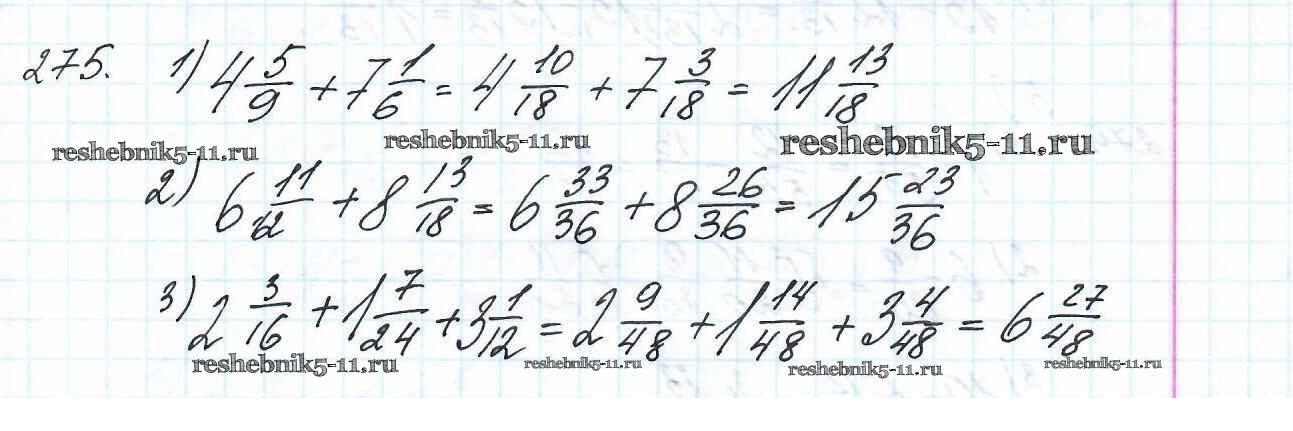 275. 1) 4 5/9 + 7 1/6 = 4 10/18 + 7 3/18 = 11 13/18
reshebnik5-11.ru reshebnik5-11.ru reshebnik5-11.ru
2) 6 11/12 + 8 13/18 = 6 33/36 + 8 26/36 = 15 23/36
3) 2 3/16 + 1 7/24 + 3 1/12 = 2 9/48 + 1 14/48 + 3 4/48 = 6 27/48
reshebnik5-11.ru reshebnik5-11.ru reshebnik5-11.ru reshebnik5-11.ru